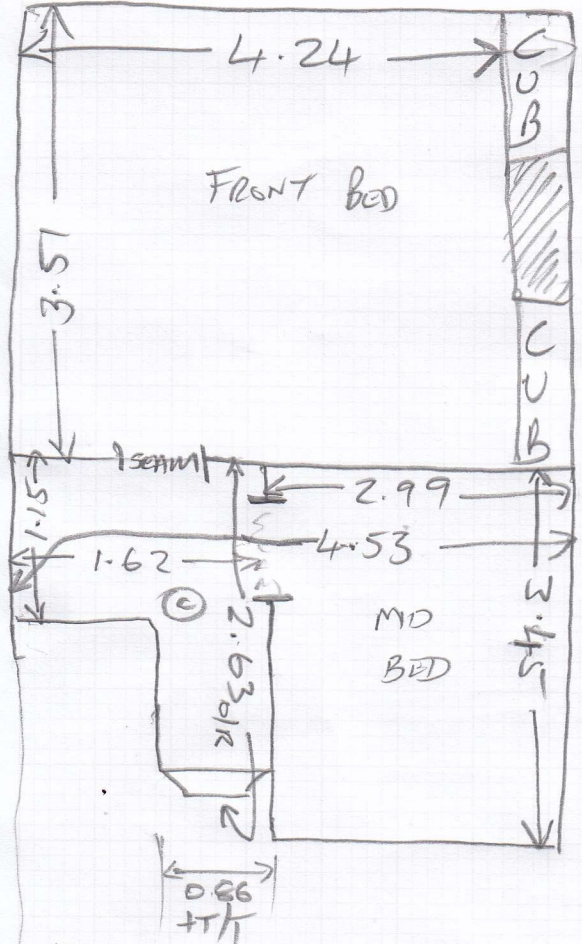 4.24
CUB
FRONT BED
3.51
CUB
SEAM
2.99
1.15
4.53
1.62
C
MD
BED
3.45
2.63 O/K
0.86
+T/T